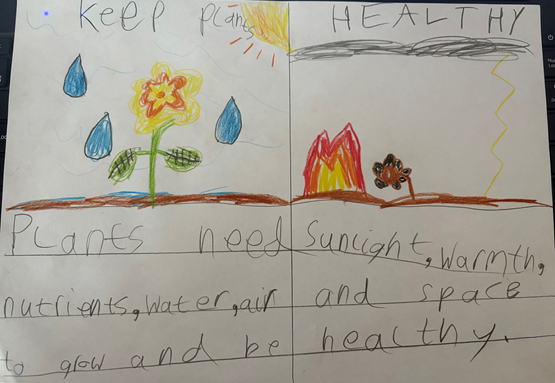 Keep plants HEALTHY
Plants need sunlight, warmth,
nutrients, water, air and space
to grow and be healthy.